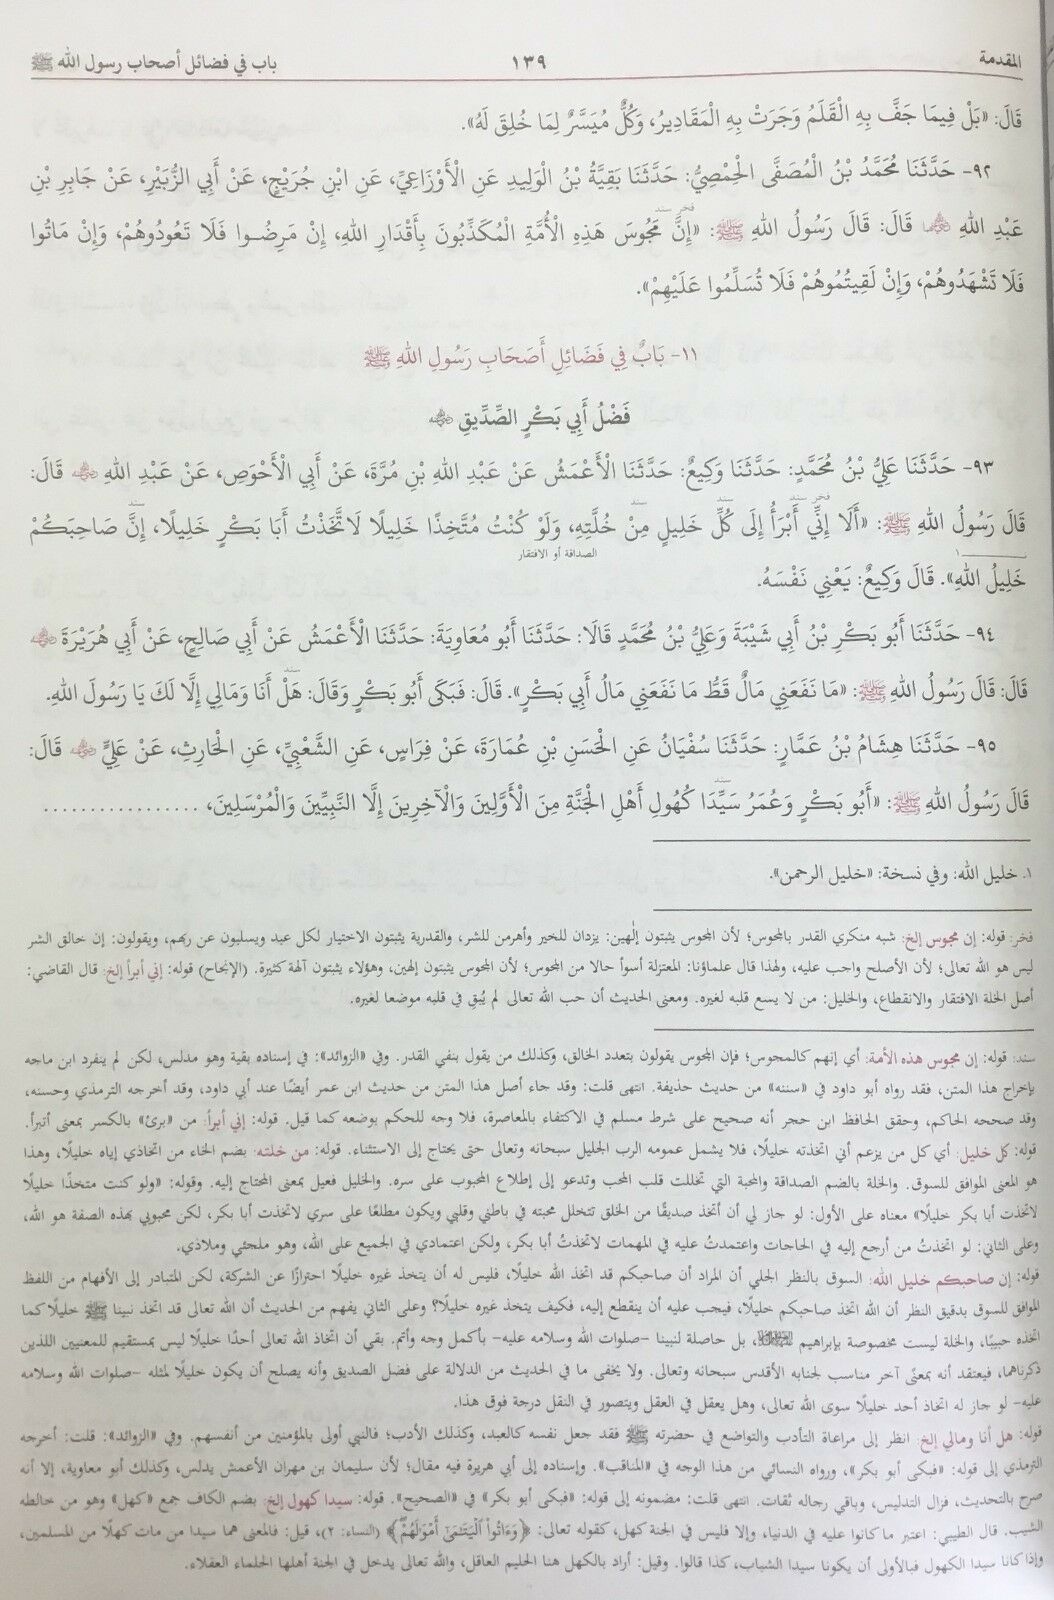 المقدمة ١٣٩ باب في فضائل أصحاب رسول الله ﷺ
قَالَ: «بَلْ فِيمَا جَفَّ بِهِ الْقَلَمُ وَجَرَتْ بِهِ الْمَقَادِيرُ، وَكُلٌّ مُيَسَّرٌ لِمَا خُلِقَ لَهُ».
٩٢- حَدَّثَنَا مُحَمَّدُ بْنُ الْمُصَفَّى الْحِمْصِيُّ: حَدَّثَنَا بَقِيَّةُ بْنُ الْوَلِيدِ عَنِ الْأَوْزَاعِيِّ، عَنِ ابْنِ جُرَيْجٍ، عَنْ أَبِي الزُّبَيْرِ، عَنْ جَابِرِ بْنِ
فخر سند
عَبْدِ اللهِ ﵁ قَالَ: قَالَ رَسُولُ اللهِ ﷺ: «إِنَّ مَجُوسَ هَذِهِ الْأُمَّةِ الْمُكَذِّبُونَ بِأَقْدَارِ اللهِ، إِنْ مَرِضُوا فَلَا تَعُودُوهُمْ، وَإِنْ مَاتُوا
فَلَا تَشْهَدُوهُمْ، وَإِنْ لَقِيتُمُوهُمْ فَلَا تُسَلِّمُوا عَلَيْهِمْ».
١١- بَابٌ فِي فَضَائِلِ أَصْحَابِ رَسُولِ اللهِ ﷺ
فَضْلُ أَبِي بَكْرٍ الصِّدِّيقِ ﵁
٩٣- حَدَّثَنَا عَلِيُّ بْنُ مُحَمَّدٍ: حَدَّثَنَا وَكِيعٌ: حَدَّثَنَا الْأَعْمَشُ عَنْ عَبْدِ اللهِ بْنِ مُرَّةَ، عَنْ أَبِي الْأَحْوَصِ، عَنْ عَبْدِ اللهِ ﵁ قَالَ:
فخر سند سند سند سند
قَالَ رَسُولُ اللهِ ﷺ: «أَلَا إِنِّي أَبْرَأُ إِلَى كُلِّ خَلِيلٍ مِنْ خُلَّتِهِ، وَلَوْ كُنْتُ مُتَّخِذًا خَلِيلًا لَاتَّخَذْتُ أَبَا بَكْرٍ خَلِيلًا، إِنَّ صَاحِبَكُمْ
الصداقة أو الافتقار
خَلِيلُ اللهِ١». قَالَ وَكِيعٌ: يَعْنِي نَفْسَهُ.
٩٤- حَدَّثَنَا أَبُو بَكْرِ بْنُ أَبِي شَيْبَةَ وَعَلِيُّ بْنُ مُحَمَّدٍ قَالَا: حَدَّثَنَا أَبُو مُعَاوِيَةَ: حَدَّثَنَا الْأَعْمَشُ عَنْ أَبِي صَالِحٍ، عَنْ أَبِي هُرَيْرَةَ ﵁
سند
قَالَ: قَالَ رَسُولُ اللهِ ﷺ: «مَا نَفَعَنِي مَالٌ قَطُّ مَا نَفَعَنِي مَالُ أَبِي بَكْرٍ». قَالَ: فَبَكَى أَبُو بَكْرٍ وَقَالَ: هَلْ أَنَا وَمَالِي إِلَّا لَكَ يَا رَسُولَ اللهِ.
٩٥- حَدَّثَنَا هِشَامُ بْنُ عَمَّارٍ: حَدَّثَنَا سُفْيَانُ عَنِ الْحَسَنِ بْنِ عُمَارَةَ، عَنْ فِرَاسٍ، عَنِ الشَّعْبِيِّ، عَنِ الْحَارِثِ، عَنْ عَلِيٍّ ﵁ قَالَ:
سند
قَالَ رَسُولُ اللهِ ﷺ: «أَبُو بَكْرٍ وَعُمَرُ سَيِّدَا كُهُولِ أَهْلِ الْجَنَّةِ مِنَ الْأَوَّلِينَ وَالْآخِرِينَ إِلَّا النَّبِيِّينَ وَالْمُرْسَلِينَ، . . . . . . . . . . . . . . . .
١. خليل الله: وفي نسخة: «خليل الرحمن».
فخر: قوله: إن مجوس إلخ: شبه منكري القدر بالمجوس؛ لأن المجوس يثبتون إلٰهين: يزدان للخير وأهرمن للشر، والقدرية يثبتون الاختيار لكل عبد ويسلبون عن ربهم، ويقولون: إن خالق الشر
ليس هو الله تعالى؛ لأن الأصلح واجب عليه، ولهذا قال علماؤنا: المعتزلة أسوأ حالا من المجوس؛ لأن المجوس يثبتون إلهين، وهؤلاء يثبتون آلهة كثيرة. (الإنجاح) قوله: إني أبرأ إلخ: قال القاضي:
أصل الخلة الافتقار والانقطاع، والخليل: من لا يسع قلبه لغيره. ومعنى الحديث أن حب الله تعالى لم يُبقِ في قلبه موضعا لغيره.
سند: قوله: إن مجوس هذه الأمة: أي إنهم كالمجوس؛ فإن المجوس يقولون بتعدد الخالق، وكذلك من يقول بنفي القدر. وفي «الزوائد»: في إسناده بقية وهو مدلس، لكن لم ينفرد ابن ماجه
بإخراج هذا المتن، فقد رواه أبو داود في «سننه» من حديث حذيفة. انتهى قلت: وقد جاء أصل هذا المتن من حديث ابن عمر أيضًا عند أبي داود، وقد أخرجه الترمذي وحسنه،
وقد صححه الحاكم، وحقق الحافظ ابن حجر أنه صحيح على شرط مسلم في الاكتفاء بالمعاصرة، فلا وجه للحكم بوضعه كما قيل. قوله: إني أبرأ: من «برئ» بالكسر بمعنى أتبرأ.
قوله: كل خليل: أي كل من يزعم أني اتخذته خليلًا، فلا يشمل عمومه الرب الجليل سبحانه وتعالى حتى يحتاج إلى الاستثناء. قوله: من خلته: بضم الخاء من اتخاذي إياه خليلًا، وهذا
هو المعنى الموافق للسوق. والخلة بالضم الصداقة والمحبة التي تخللت قلب المحب وتدعو إلى إطلاع المحبوب على سره. والخليل فعيل بمعنى المحتاج إليه. وقوله: «ولو كنت متخذًا خليلًا
لاتخذت أبا بكر خليلًا» معناه على الأول: لو جاز لي أن أتخذ صديقًا من الخلق تتخلل محبته في باطني وقلبي ويكون مطلعًا على سري لاتخذت أبا بكر، لكن محبوبي بهذه الصفة هو الله،
وعلى الثاني: لو اتخذتُ من أرجع إليه في الحاجات واعتمدتُ عليه في المهمات لاتخذتُ أبا بكر، ولكن اعتمادي في الجميع على الله، وهو ملجئي وملاذي.
قوله: إن صاحبكم خليل الله: السوق بالنظر الجلي أن المراد أن صاحبكم قد اتخذ الله خليلًا، فليس له أن يتخذ غيره خليلًا احترازًا عن الشركة، لكن المتبادر إلى الأفهام من اللفظ
الموافق للسوق بدقيق النظر أن الله اتخذ صاحبكم خليلًا، فيجب عليه أن ينقطع إليه، فكيف يتخذ غيره خليلًا؟ وعلى الثاني يفهم من الحديث أن الله تعالى قد اتخذ نبينا ﷺ خليلًا كما
اتخذه حبيبًا، والخلة ليست مخصوصة بإبراهيم ﵇، بل حاصلة لنبينا -صلوات الله وسلامه عليه- بأكمل وجه وأتم. بقي أن اتخاذ الله تعالى أحدًا خليلًا ليس بمستقيم للمعنيين اللذين
ذكرناهما، فيعتقد أنه بمعنًى آخر مناسب لجنابه الأقدس سبحانه وتعالى. ولا يخفى ما في الحديث من الدلالة على فضل الصديق وأنه يصلح أن يكون خليلًا لمثله -صلوات الله وسلامه
عليه- لو جاز له اتخاذ أحد خليلًا سوى الله تعالى، وهل يعقل في العقل ويتصور في النقل درجة فوق هذا.
قوله: هل أنا ومالي إلخ: انظر إلى مراعاة التأدب والتواضع في حضرته ﷺ فقد جعل نفسه كالعبد، وكذلك الأدب؛ فالنبي أولى بالمؤمنين من أنفسهم. وفي «الزوائد»: قلت: أخرجه
الترمذي إلى قوله: «فبكى أبو بكر»، ورواه النسائي من هذا الوجه في «المناقب». وإسناده إلى أبي هريرة فيه مقال؛ لأن سليمان بن مهران الأعمش يدلس، وكذلك أبو معاوية، إلا أنه
صرح بالتحديث، فزال التدليس، وباقي رجاله ثقات. انتهى قلت: مضمونه إلى قوله: «فبكى أبو بكر» في «الصحيح». قوله: سيدا كهول إلخ: بضم الكاف جمع «كهل» وهو من خالطه
الشيب. قال الطيبي: اعتبر ما كانوا عليه في الدنيا، وإلا فليس في الجنة كهل، كقوله تعالى: ﴿وَءَاتُواْ ٱلْيَتَٰمَىٰٓ أَمْوَٰلَهُمْ﴾ (النساء: ٢)، قيل: فالمعنى هما سيدا من مات كهلًا من المسلمين،
وإذا كانا سيدا الكهول فبالأولى أن يكونا سيدا الشباب، كذا قالوا. وقيل: أراد بالكهل هنا الحليم العاقل، والله تعالى يدخل في الجنة أهلها الحلماء العقلاء.